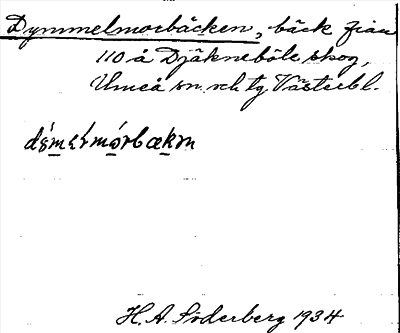 Dymmelmorbäcken, bäck från
110 å Djäkneböle skog,
Umeå sn och tg Västerbl.
H. A. Söderberg 1934